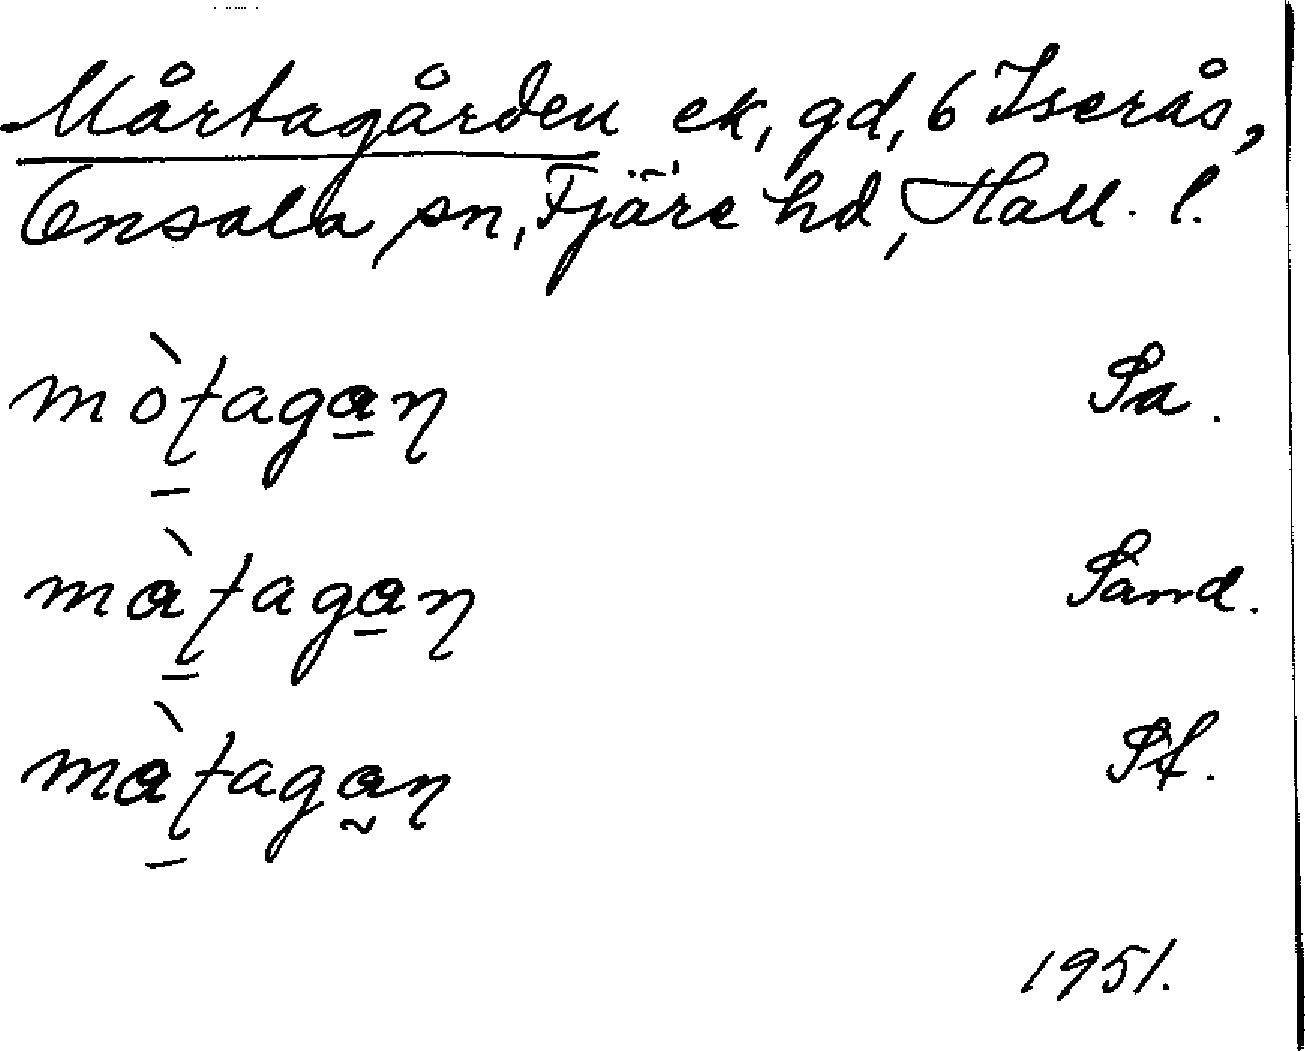 Mårtagården ek, gd, 6 Iserås,
Onsala sn, Fjäre hd, Hall. l.
mò̱ʈaga̱ɳ Sa.
mɑ̀ʈ̱agɑ̱ɳ Sand.
mɑ̀ʈ̱agɑ̰ɳ Sf.
1951.